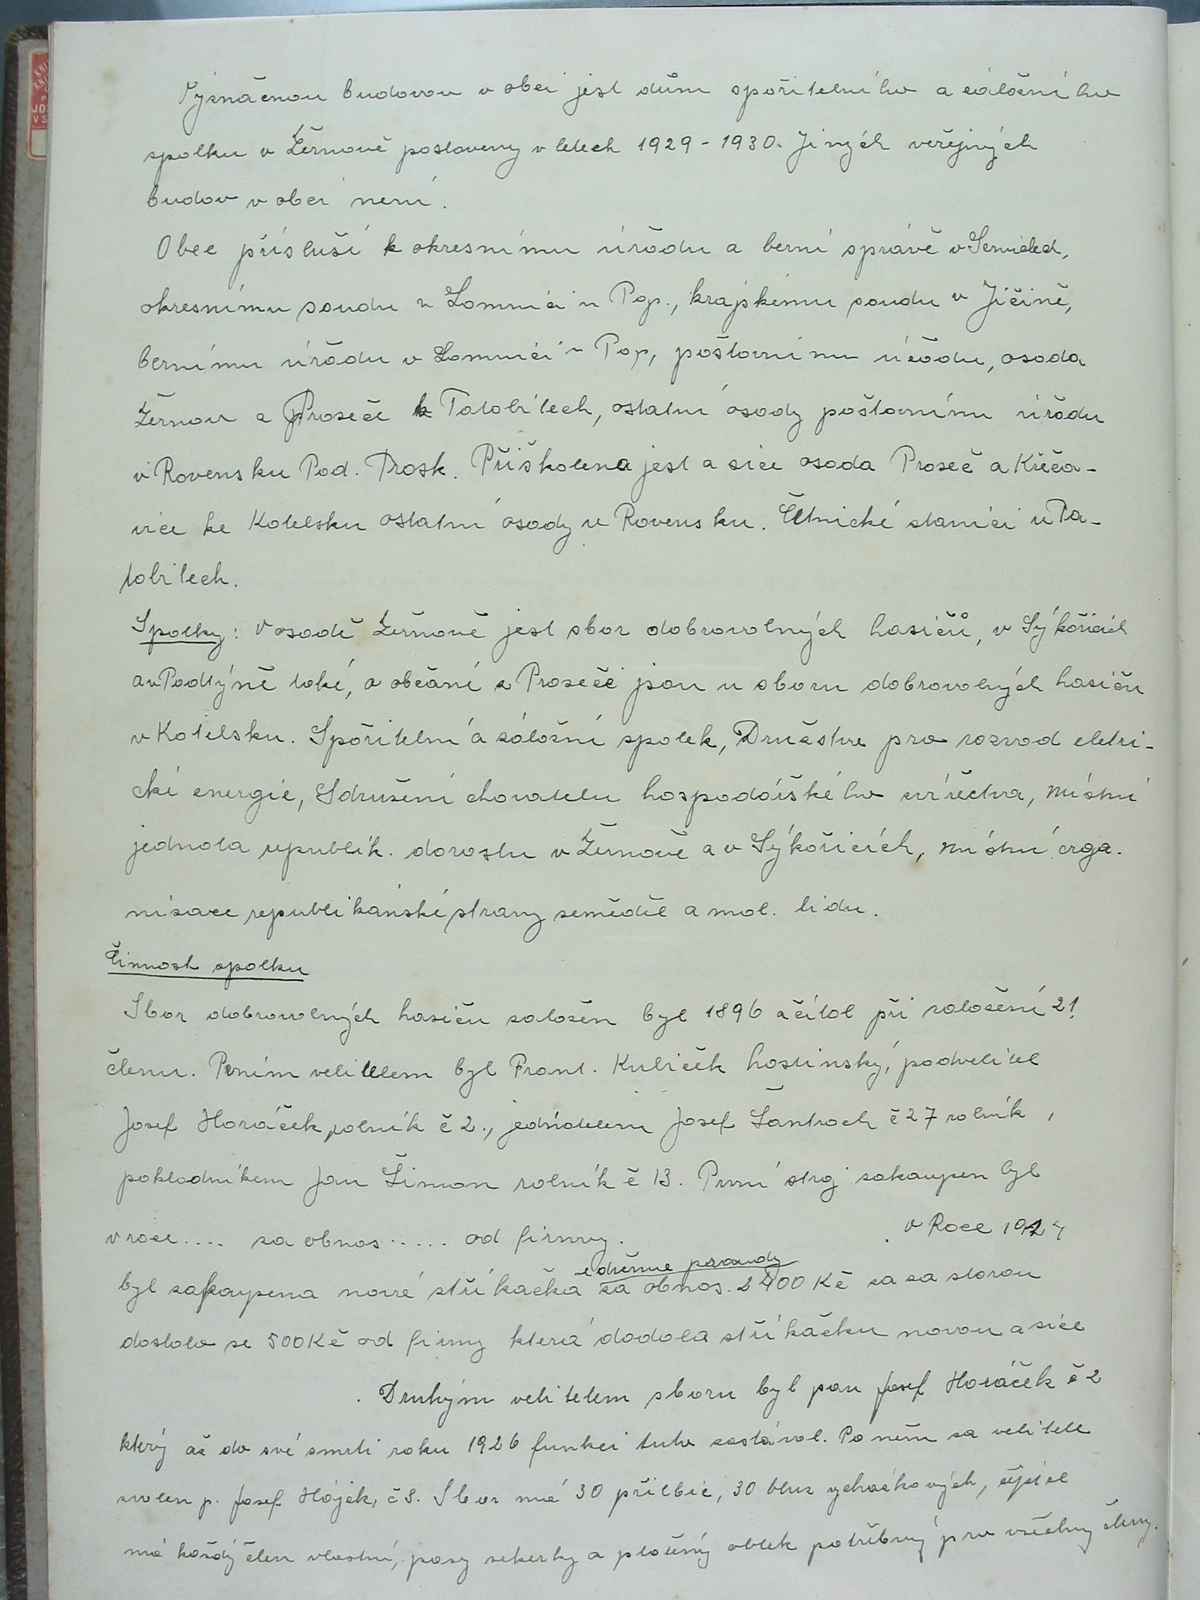 Význačnou budovou v obci jest dům spořitelního a záložního
spolku v Žernově postaveny v letech 1929 - 1930. Jiných veřejných
budov v obci není.
Obec přísluší k okresnímu úřadu a berní správě v
okresnímu soudu v Lomnici n Pop., krajskému soudu v Jičíně,
bernímu úřadu v Lomnici n Pop, poštovnímu úřadu, osada
Žernov a Proseče k Tatobitech, ostatní osady poštovnímu úřadu
v Rovensku Pod. Trosk. Přiškolena jest a sice osada Proseč a Křečo-
vice ke Kotelsku ostatní osady v Rovensku. Četnické stanici v Ta-
tobitech.
Spolky: V osadě Žernově jest sbor dobrovolných hasičů, v Sýkořicích
a v Podtýně také, a občani z Proseče jsou u sboru dobrovolných hasiču
v Kotelsku. Spořitelní a záložní spolek, Družstvo pro rozvod eletri-
cké energie, Sdružení chovatelu hospodářského zvířectva, místní
jednota republik. dorostu v Žernově a v Sýkořicích, místní orga.
nisace republikánské strany zeměděl a mal. lidu.
Činnost spolku
Sbor dobrovolných hasiču založen byl 1896 a čítal při založení 21
členu. Prvním velitelem byl Frant. Kubíček hostinský, podvelitel
Josef Horáček, rolník č 2., jednatelem Josef Šantroch č 27 rolník,
pokladníkem Jan Šimon rolník č 13. První stroj zakoupen byl
v roce .... za obnos ..... od firmy. v Roce 1924
edrženre paraudy
byl zakoupena nová stříkačka za obnos. 2400 Kč za za starou
dostalo se 500 Kč od firmy která dodala stříkačku novou a sice
. Druhým velitelem sboru byl pan Josef Horáček č 2
který až do své smrti roku 1926 funkci tuto zastával. Po něm za velitele
zvolen p. Josef Hájek, č 8. Sbor má 30 přilbic, 30 bluz
má každý člen vlastní, pasy sekerky a plátěný oblek potřebný pro všechny členy.